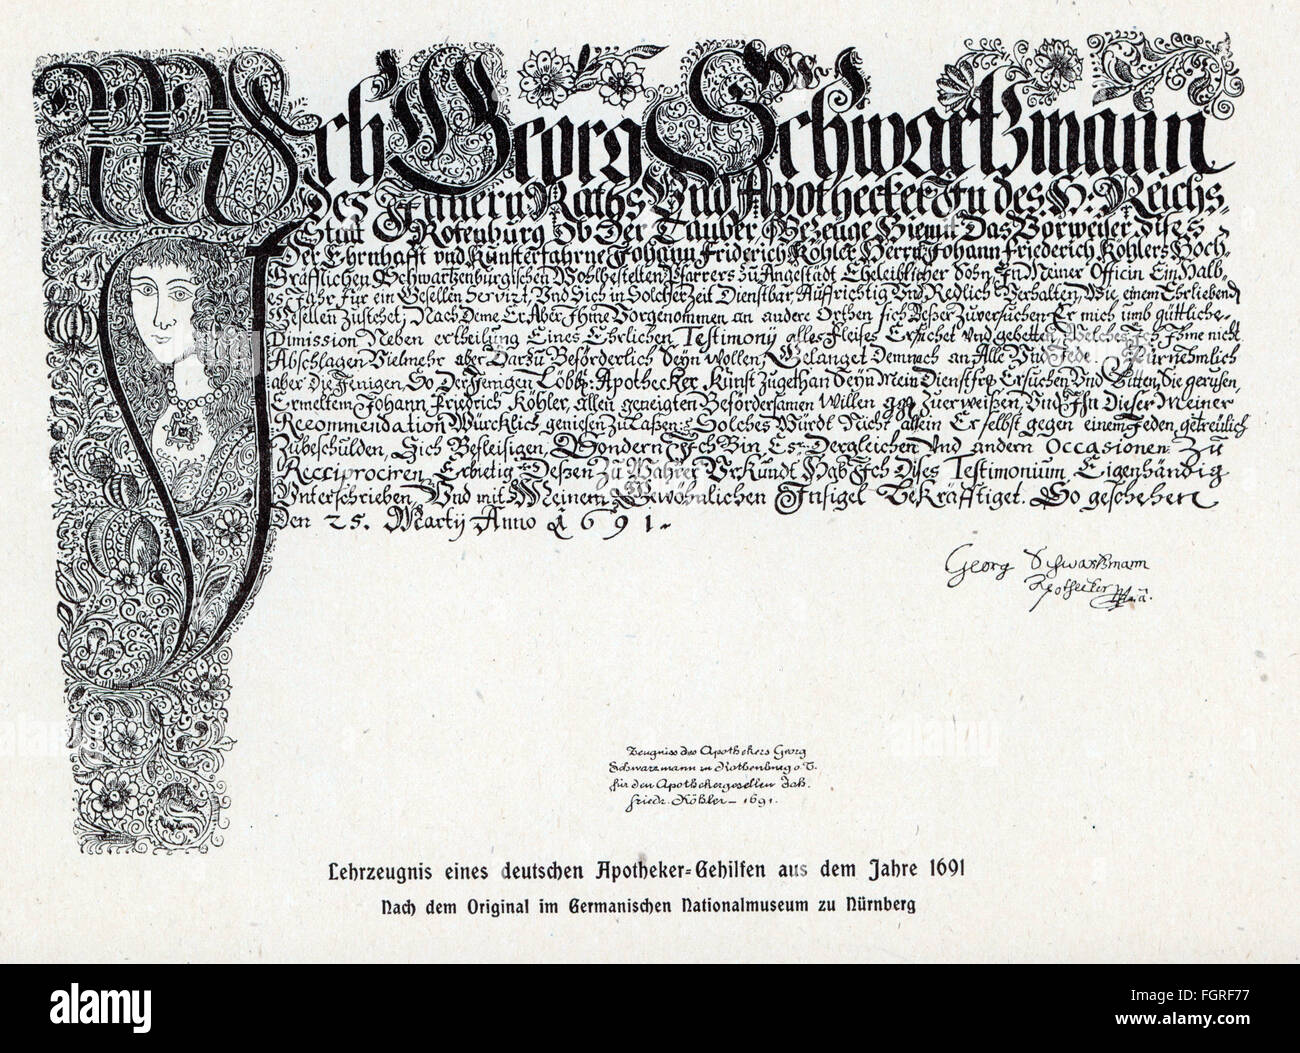 Ich Georg Schwartzmann
des Jnnern Raths Und Apothecker Jn des H: Reichs
Statt Rotenburg Ob Der Tauber Bezeuge Hiemit Das Vorweiser Dises
Der Ehrnhafft und Kunsterfahrne Johann Friderich Köhler Herrn Johann Friederich Köhlers Hoch
Gräfflichen Schwartzenburgischen Wohlbestelten Pfarrers zu Angestädt Eheleiblicher Sohn Jn Meiner Officin Ein Halb
es Jahr für ein Gesellen Servirt, Und Sich in Solcher Zeit Dienstbar, Auffrichtig Und Redlich Verhalten, Wie einem Ehrliebend
Gesellen Zustehet, Nach Deme Er Aber Jhme Vorgenommen an andere Orthen sich Besser Zuversuchen Er mich umb güttliche
Dimission Neben ertheilung Eines Ehrlichen Testimonij alles Fleises Ersuchet und gebetten, Welches Jch Jhme nicht
Abschlagen Vielmehr aber Darzu Beförderlich Seyn wollen, Gelanget Demnach an Alle Und Jede Fürnehmlich
aber Die Jenigen, So Der Jenigen Löbl: Apothecker Kunst Zugethan Seyn Mein Dienstfrs Ersuchen Und Bitten, Sie gerusen,
Ermeltem Johann Friedrich Köhler, allen geneigten Befördersamen Willen Zuerweißen, Und Jhn Dieser Meiner
Recommendation Würcklich geniesen Zu Laßen: Solches Würdt Nicht allein Er selbst gegen einem Jeden, getreulich
Zubeschulden, Sich Befleisigen, Sondern Jch Bin Es Dergleichen Und andern Occasionen Zu
Recciprociren Erbietig Deßen Zu Wahrer Urkundt Hab Jch Dises Testimonium Eigenhändig
Unterschrieben Und mit Meinem Gewöhnlichen Jnsigel Bekräfftiget. So geschehen
Den 25. Martij Anno 1691.
Georg Schwartzmann
Apothecker
Zeugniss des Apothekers Georg
Schwarzmann in Rothenburg o. T.
für den Apothekergesellen Joh.
Friedr. Köhler – 1691.
Lehrzeugnis eines deutschen Apotheker-Gehilfen aus dem Jahre 1691
Nach dem Original im Germanischen Nationalmuseum zu Nürnberg
alamy
Image ID: FGRF77
www.alamy.com